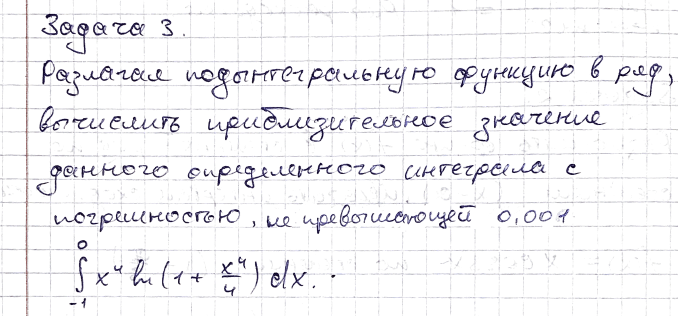 Задача 3.
Разлагая подынтегральную функцию в ряд,
вычислить приблизительное значение
данного определенного интеграла с
погрешностью, не превышающей 0,001
∫_{-1}^{0} x⁴ ln(1 + x⁴/4) dx.